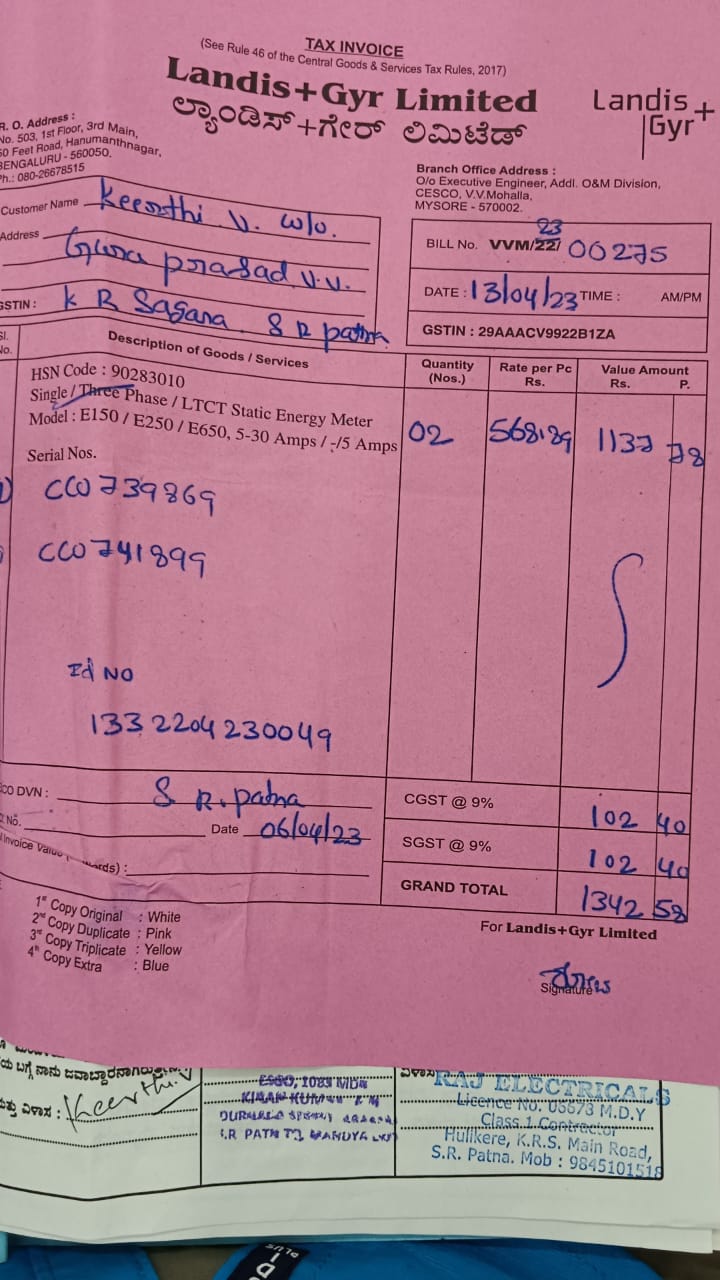 TAX INVOICE
(See Rule 46 of the Central Goods & Services Tax Rules, 2017)
Landis+Gyr Limited
ಲ್ಯಾಂಡಿಸ್+ಗೇರ್ ಲಿಮಿಟೆಡ್
Landis+
Gyr
R. O. Address :
No. 503, 1st Floor, 3rd Main,
Feet Road, Hanumanthnagar,
BENGALURU - 560050.
Ph.: 080-26678515
Branch Office Address :
O/o Executive Engineer, Addl. O&M Division,
CESCO, V.V.Mohalla,
MYSORE - 570002.
Customer Name Keerthi V. W/o.
Address Guru prasad V.V.
K R Sagara. S R patna
GSTIN :
BILL No. VVM/22/ 23 00275
DATE : 13/04/23 TIME : AM/PM
GSTIN : 29AAACV9922B1ZA
Sl. No. Description of Goods / Services Quantity (Nos.) Rate per Pc Rs. Value Amount Rs. P.
HSN Code : 90283010
Single / Three Phase / LTCT Static Energy Meter
Model : E150 / E250 / E650, 5-30 Amps / -/5 Amps 02 568.89 1137 78
Serial Nos.
CC0739869
CC0741899
Id No
1332204230049
DVN : S R. patna
CGST @ 9% 102 40
No. Date 06/04/23
SGST @ 9% 102 40
Invoice Value
GRAND TOTAL 1342 58
1st Copy Original : White
2nd Copy Duplicate : Pink
3rd Copy Triplicate : Yellow
4th Copy Extra : Blue
For Landis+Gyr Limited
Signature
ಬಗ್ಗೆ ನಾನು
ವಿಳಾಸ : Keerthi.V
RAJ ELECTRICALS
Licence No. 05673 M.D.Y
Class 1 Contractor
Hulikere, K.R.S. Main Road,
S.R. Patna. Mob : 9845101518